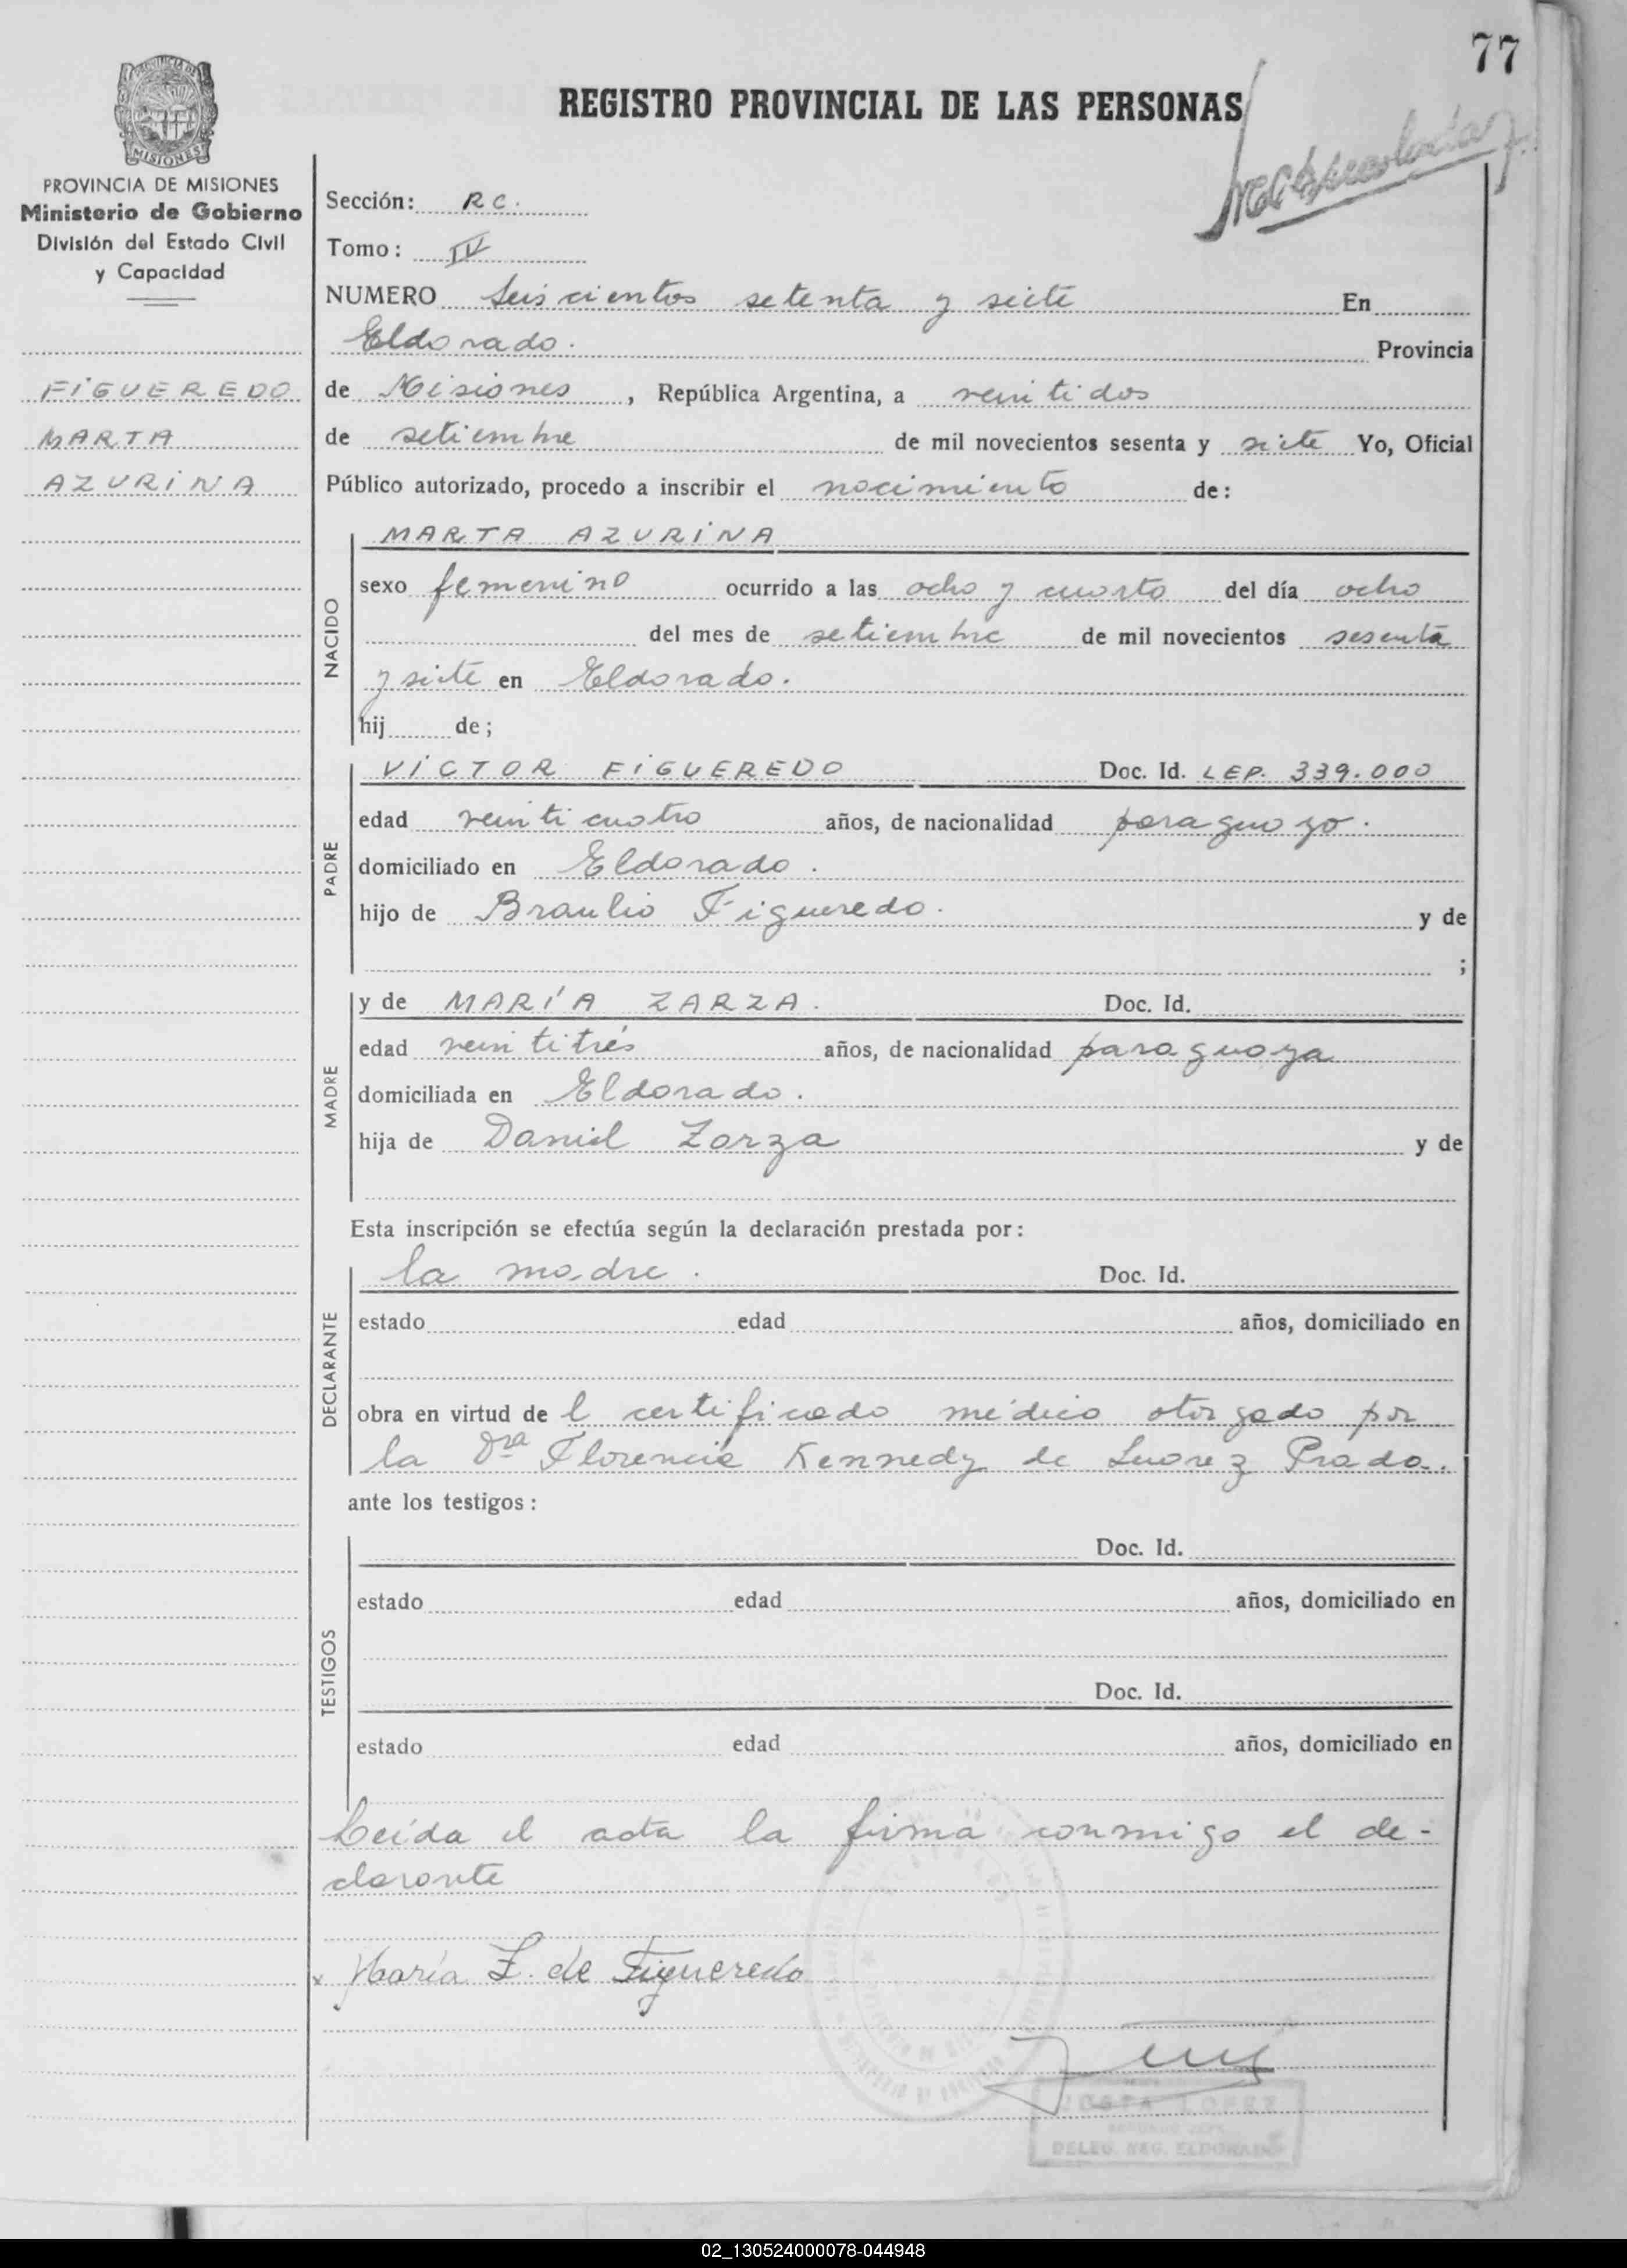 77
REGISTRO PROVINCIAL DE LAS PERSONAS
MISIONES
PROVINCIA DE MISIONES
Ministerio de Gobierno
División del Estado Civil
y Capacidad
FIGUEREDO
MARTA
AZURINA
Sección: RC.
Tomo: IV
NUMERO Seiscientos setenta y siete En
Eldorado. Provincia
de Misiones, República Argentina, a veintidos
de setiembre de mil novecientos sesenta y siete Yo, Oficial
Público autorizado, procedo a inscribir el nacimiento de:
NACIDO
MARTA AZURINA
sexo femenino ocurrido a las ocho y cuarto del día ocho
del mes de setiembre de mil novecientos sesenta
y siete en Eldorado.
hij de;
PADRE
VICTOR FIGUEREDO Doc. Id. LEP. 339.000
edad veinticuatro años, de nacionalidad paraguayo.
domiciliado en Eldorado.
hijo de Braulio Figueredo. y de
;
MADRE
y de MARÍA ZARZA. Doc. Id.
edad veintitrés años, de nacionalidad paraguaya
domiciliada en Eldorado.
hija de Daniel Zarza y de
Esta inscripción se efectúa según la declaración prestada por:
DECLARANTE
la madre. Doc. Id.
estado edad años, domiciliado en
obra en virtud de l certificado médico otorgado por
la Dra Florencia Kennedy de Suarez Prado.
ante los testigos:
TESTIGOS
Doc. Id.
estado edad años, domiciliado en
Doc. Id.
estado edad años, domiciliado en
Leída el acta la firma conmigo el de-
clarante
x María Z. de Figueredo
LOPEZ
DELEG. REG. ELDORADO
02_130524000078-044948